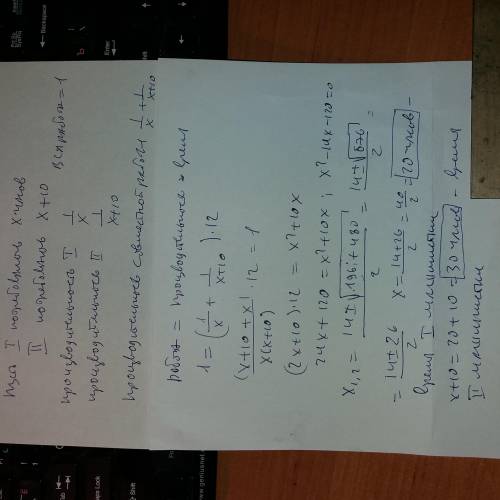 Пусть I потребовалось x часов
II потребовалось x+10
производительность I 1/x вся работа = 1
производительность II 1/(x+10)
Производительность совместной работы 1/x + 1/(x+10)
работа = производительность × время
1 = (1/x + 1/(x+10)) · 12
(x+10+x)/(x(x+10)) · 12 = 1
(2x+10) · 12 = x²+10x
24x+120 = x²+10x; x²-14x-120=0
x₁,₂ = (14±√(196+480))/2 = (14±√676)/2 =
= (14±26)/2 x = (14+26)/2 = 40/2 = 20 часов -
время I машинистки
x+10=20+10=30 часов - время
II машинистки